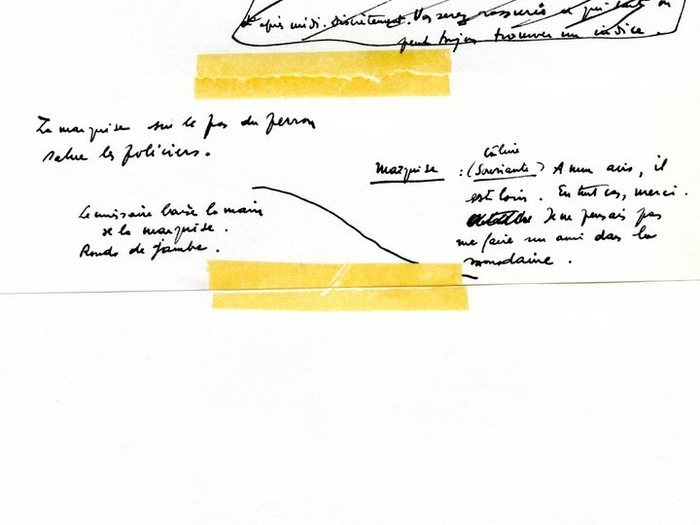 après midi. discrètement. Vous serez rassurés et puis
peut toujours trouver un indice.
La marquise sur le pas du perron
salue les policiers.
Commissaire baise la main
de la marquise.
Ronds de jambe.
Câline
Marquise : (Souriante) A mon avis, il
est loin. En tout cas, merci.
Je ne pensais pas
me faire un ami dans la
mondaine.